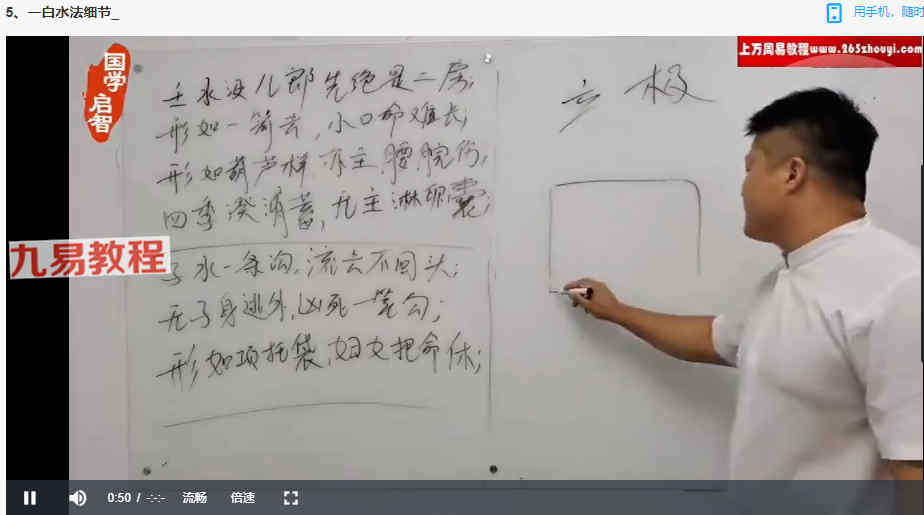 5、一白水法细节_
用手机，随时
国学
启智
上万周易教程www.265zhouyi.com
壬水没儿郎先绝是二房；
形如一箭去，小口命难长；
形如葫芦样亦主腰腕伤，
四季涝消蓄，尤主淋卵囊；
九易教程
子水一条沟，流去不回头；
无子身逃外，凶死一笔勾；
形如项托袋，妇女把命休；
立极
0:50 / -:-:-
流畅
倍速